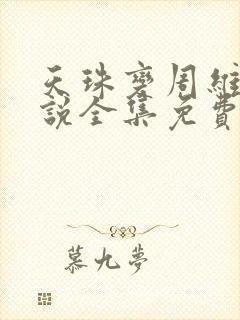 天珠變周維
說全集免費
慕九夢